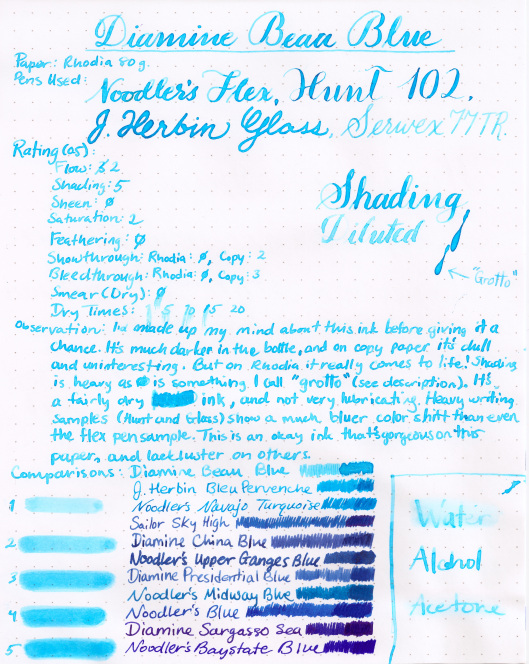 Diamine Beau Blue
Paper: Rhodia 80g.
Pens Used:
Noodler's Flex, Hunt 102,
J. Herbin Glass, Serwex 77TR.
Rating (05):
Flow: 2
Shading: 5
Sheen: Ø
Saturation: 2
Feathering: Ø
Showthrough: Rhodia: Ø, Copy: 2
Bleedthrough: Rhodia: Ø, Copy: 3
Smear (Dry): Ø
Dry Times: 1 5 10 15 20
Shading
Diluted
"Grotto"
Observation: I'd made up my mind about this ink before giving it a
chance. It's much darker in the bottle, and on copy paper it's dull
and uninteresting. But on Rhodia it really comes to life! Shading
is heavy as is something I call "grotto" (see description). It's
a fairly dry ink, and not very lubricating. Heavy writing
samples (Hunt and Glass) show a much bluer color shift than even
the flex pen sample. This is an okay ink that's gorgeous on this
paper, and lackluster on others.
Comparisons: Diamine Beau Blue
J. Herbin Bleu Pervenche
Noodler's Navajo Turquoise
Sailor Sky High
Diamine China Blue
Noodler's Upper Ganges Blue
Diamine Presidential Blue
Noodler's Midway Blue
Noodler's Blue
Diamine Sargasso Sea
Noodler's Baystate Blue
1
2
3
4
5
Water
Alchol
Acetone